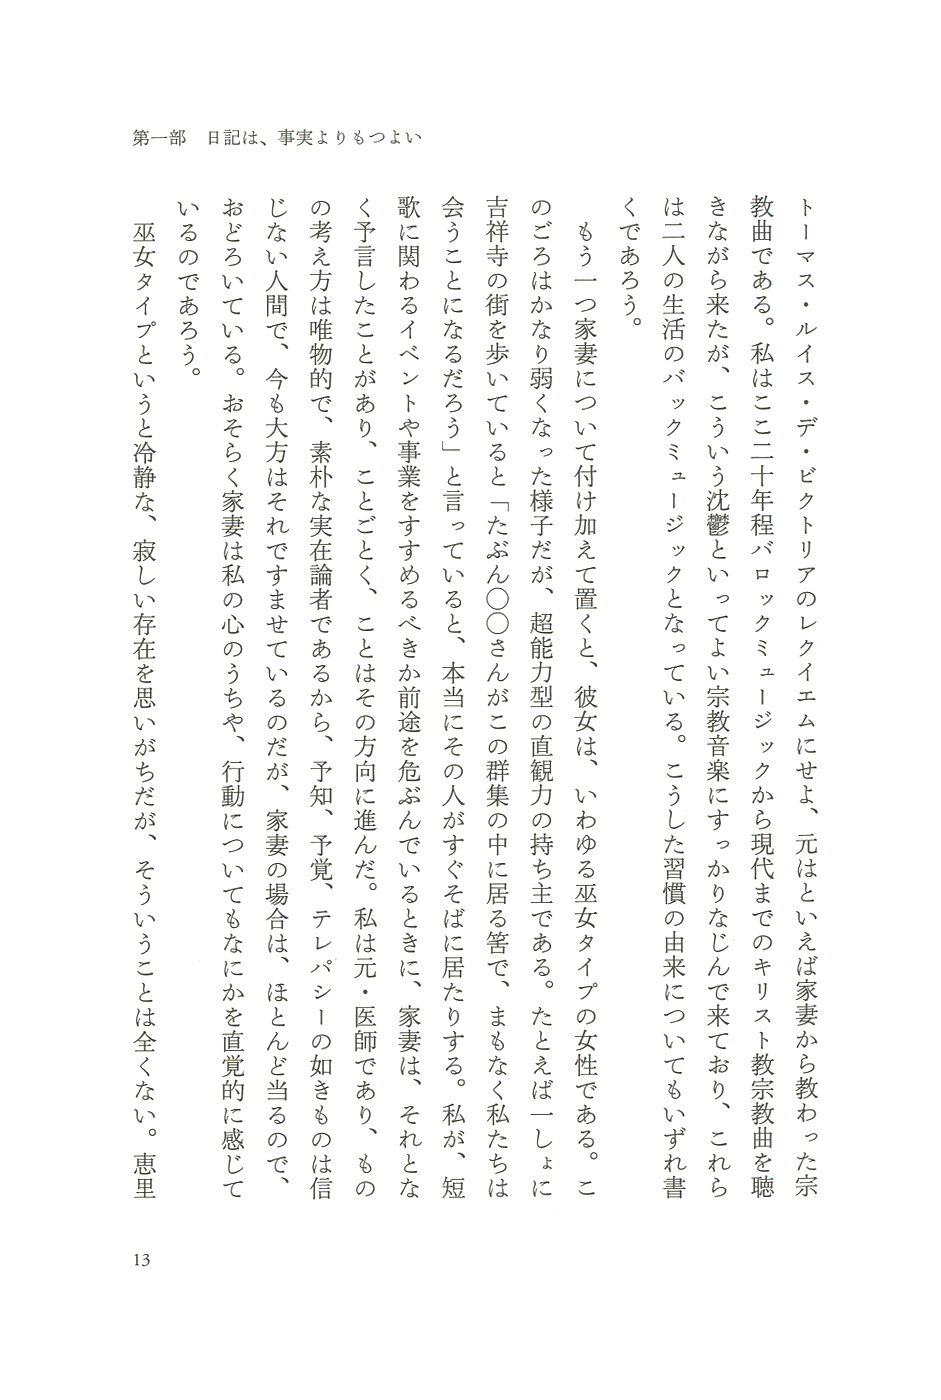 第一部　日記は、事実よりもつよい
トーマス・ルイス・デ・ビクトリアのレクイエムにせよ、元はといえば家妻から教わった宗
教曲である。私はここ二十年程バロックミュージックから現代までのキリスト教宗教曲を聴
きながら来たが、こういう沈鬱といってよい宗教音楽にすっかりなじんで来ており、これら
は二人の生活のバックミュージックとなっている。こうした習慣の由来についてもいずれ書
くであろう。
　もう一つ家妻について付け加えて置くと、彼女は、いわゆる巫女タイプの女性である。こ
のごろはかなり弱くなった様子だが、超能力型の直観力の持ち主である。たとえば一しょに
吉祥寺の街を歩いていると「たぶん〇〇さんがこの群集の中に居る筈で、まもなく私たちは
会うことになるだろう」と言っていると、本当にその人がすぐそばに居たりする。私が、短
歌に関わるイベントや事業をすすめるべきか前途を危ぶんでいるときに、家妻は、それとな
く予言したことがあり、ことごとく、ことはその方向に進んだ。私は元・医師であり、もの
の考え方は唯物的で、素朴な実在論者であるから、予知、予覚、テレパシーの如きものは信
じない人間で、今も大方はそれですませているのだが、家妻の場合は、ほとんど当るので、
おどろいている。おそらく家妻は私の心のうちや、行動についてもなにかを直覚的に感じて
いるのであろう。
　巫女タイプというと冷静な、寂しい存在を思いがちだが、そういうことは全くない。恵里
13